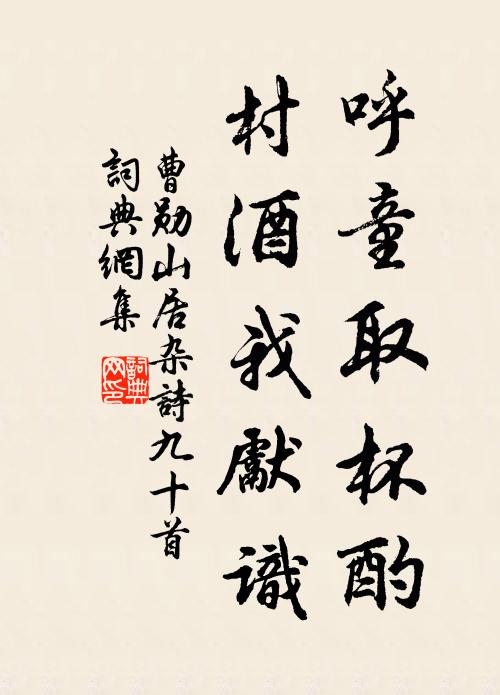 呼童取杯酌
村酒我獻識
曹勛山居杂詩九十首
詞典網集
詞典網印